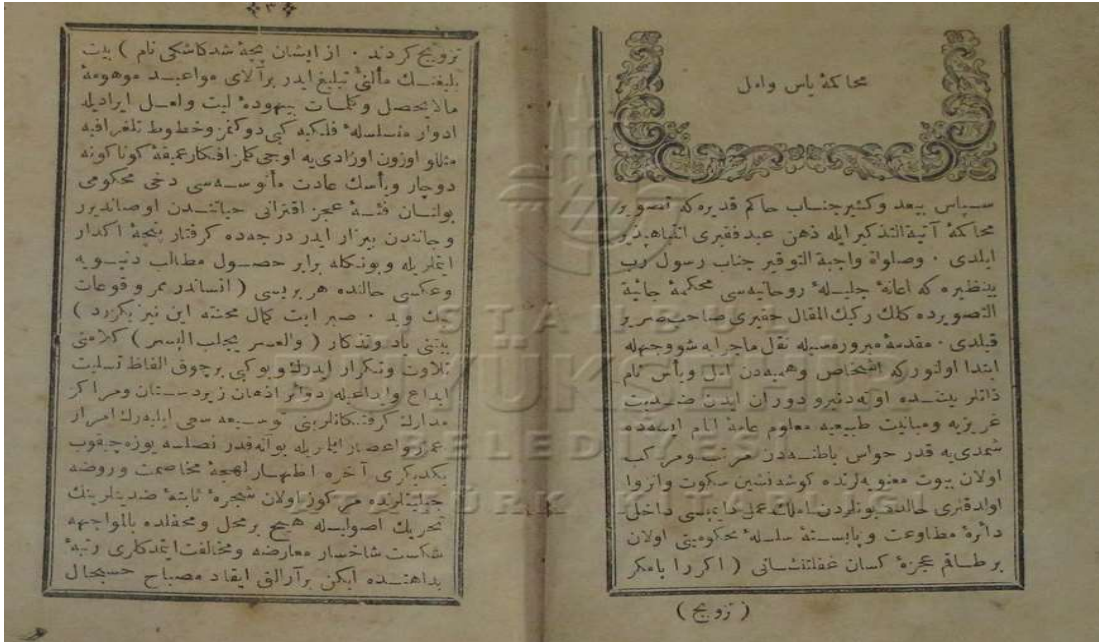 محاكمۀ یاس وامل
سپاس بیعد وكثیر جناب حاكم قدیره كه تصویر
محاكمۀ آتیةالتذكیر ایله ذهن عبد فقیری انتباهپذیر
ایلدی ٠ وصلواة واجبة التوقیر جناب رسول رب
بینظیره كه اعانۀ جلیلۀ روحانیه سی محكمۀ جانیة
التصویرده كلك ركیك المقال حقیری صاحب صریر
قیلدی ٠ مقدمۀ مبروره سیله نقل ماجرایه شو وجهله
ابتدا اولنور كه اشخاص وهمیه دن امل ویأس نام
ذاتلر بیننده اوته دنبرو دوران ایدن ضدیت
غریزیه ومباینت طبیعیه معلوم عامۀ انام ایسه ده
شمدی یه قدر حواس باطنه دن مرتب ومركب
اولان بیوت معنویه لرنده كوشه نشین سكوت وانزوا
اولدقلری حالده بونلردن املك عمل دایمیسی داخل
دائرۀ مطاوعت وپابستۀ سلسلۀ محكومیتی اولان
بر طاقم عجزۀ كسان غفلتنشانی ( اكر را بامكر
( تزویج )
❖ ٣ ❖
تزویج كردند ٠ از ایشان بچۀ شد كاشكی نام ) بیت
بلیغنك مآلنی تبلیغ ایدر برآلای مواعید موهومۀ
مالایحصل وكلمات بیهودۀ لیت ولعل ایرادیله
ادوار متسلسلۀ فلكیه كبی دوكنمز وخطوط تلغرافیه
مثللو اوزون اوزادی یه اوجی كلمز افكار عمیقۀ كوناكونه
دوچار ویأسك عادت مأنوسه سی دخی محكومی
بولنان فئۀ عجز اقترانی حیاتندن اوصاندیرر
وجانندن بیزار ایدر درجه ده كرفتار پنچۀ اكدار
ایتملریله وبونكله برابر حصول مطالب دنیویه
وعكسی حالنده هر بریسی ( افساندر ممر وقوعات
نیك وبد ٠ صبر ایت كمال محنته این نیز بكزرد )
بیتنی یاد وتذكار ( والعسر یجلب الیسر ) كلامنی
تلاوت وتكرار ایدرك وبو كبی برچوق الفاظ تسلیت
ابداع وایداعیله دوائر اذهان زیردستان ومراكز
مدارك كرفتكانلرینی توسیعه سعی ایلیه رك امرار
عمر واعصار ایتملریله بوآنه قدر فصلسه یوزه چیقوب
یكدیكری آخره اظهار لهجۀ مخاصمت وروضۀ
جبلتلرنده مركوز اولان شجرۀ ثابتۀ ضدیتلرینك
تحریك اصولیله هیچ بر محل ومحفلده بالمواجهه
شكست شاخسار معارضه ومخالفت ایتمدكلری رتبۀ
بداهتده ایكن برآرالق ایقاد مصباح حسبحال
İSTANBUL
BÜYÜKŞEHİR
BELEDİYESİ
ATATÜRK KİTAPLIĞI